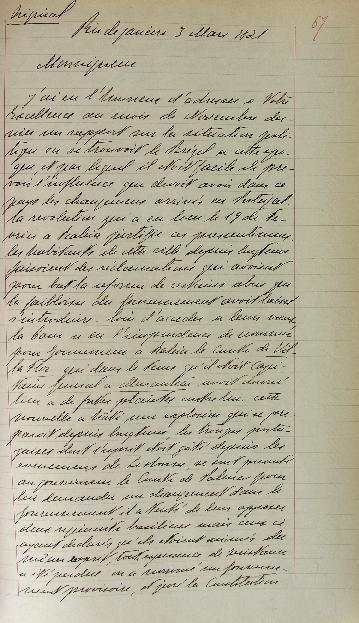 Original
67
Rio de janeiro 3 Mars 1821
Monseigneur
J'ai eu l'honneur d'adresser a Votre
Excellence au mois de Novembre der-
nier un rapport sur la situation poli-
tique ou se trouvoit le Brézil a cette épo-
que et par lequel il étoit facile de pre-
voir l'influence que devoit avoir dans ce
pays les changemens arrivés au Portugal.
La revolution qui a eu lieu le 10 de Fe-
vrier a Bahia justifie ces pressentimens.
les habitants de cette ville depuis longtems
faisoient des réclamations qui avoient
pour but la reforme de certains abus que
la faiblesse du gouvernement avoit laissé
s'introduire. loin d'acceder a leurs voeux
la cour a eu l'imprudence de nommer
pour gouverneur a Bahia le Comte de Vil-
la Flor qui dans le tems qu'il étoit capi-
taine general a avoit donné
lieu a de justes plaintes contre lui. cette
nouvelle a hâté une explosion qui se pre-
paroit depuis longtems. les troupes portu-
gaises dont l'esprit étoit gâté depuis les
evenemens de Lisbonne se sont presenté
au gouverneur le Comte de Palma pour
lui demander un changement dans le
gouvernement. il a tenté de leur opposer
deux regiments brasiliens mais ceux ci
ayant declaré qu'ils étoient animés du
même esprit, toute esperance de resistance
a été perdue on a nommé un gouverne-
ment provisoire, et juré la Constitution